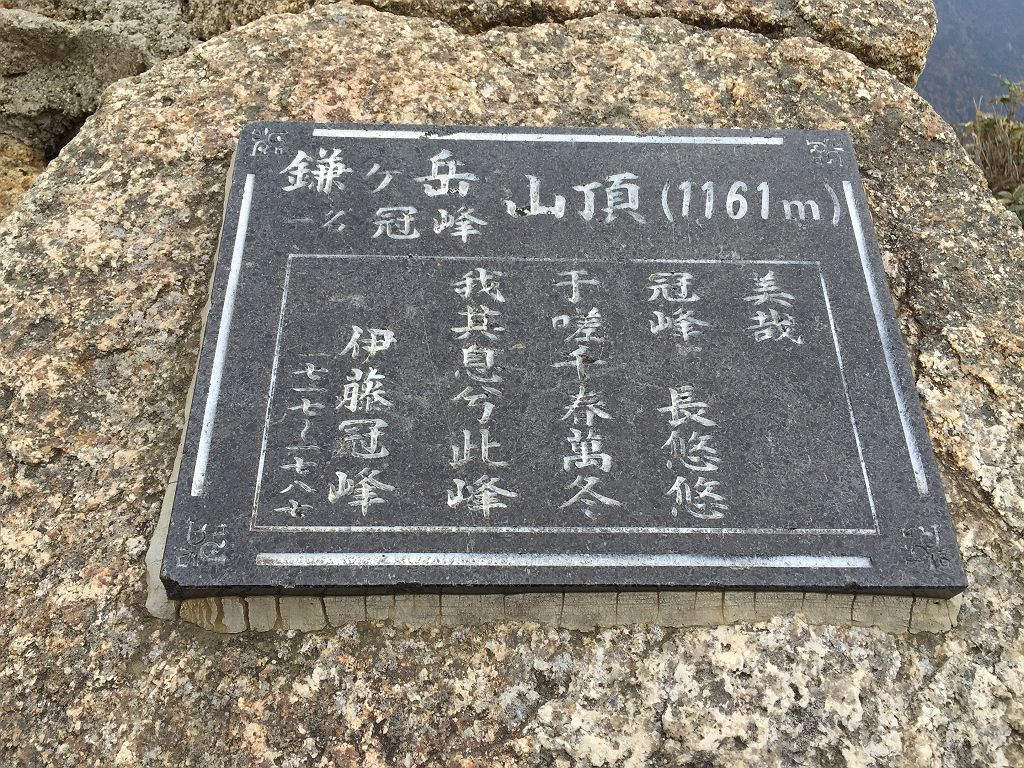 鎌ヶ岳 山頂(1161m)
一名 冠峰
美哉
冠峰 長悠悠
于嗟千春萬冬
我其息兮此峰
伊藤冠峰
一七一七〜一七八七